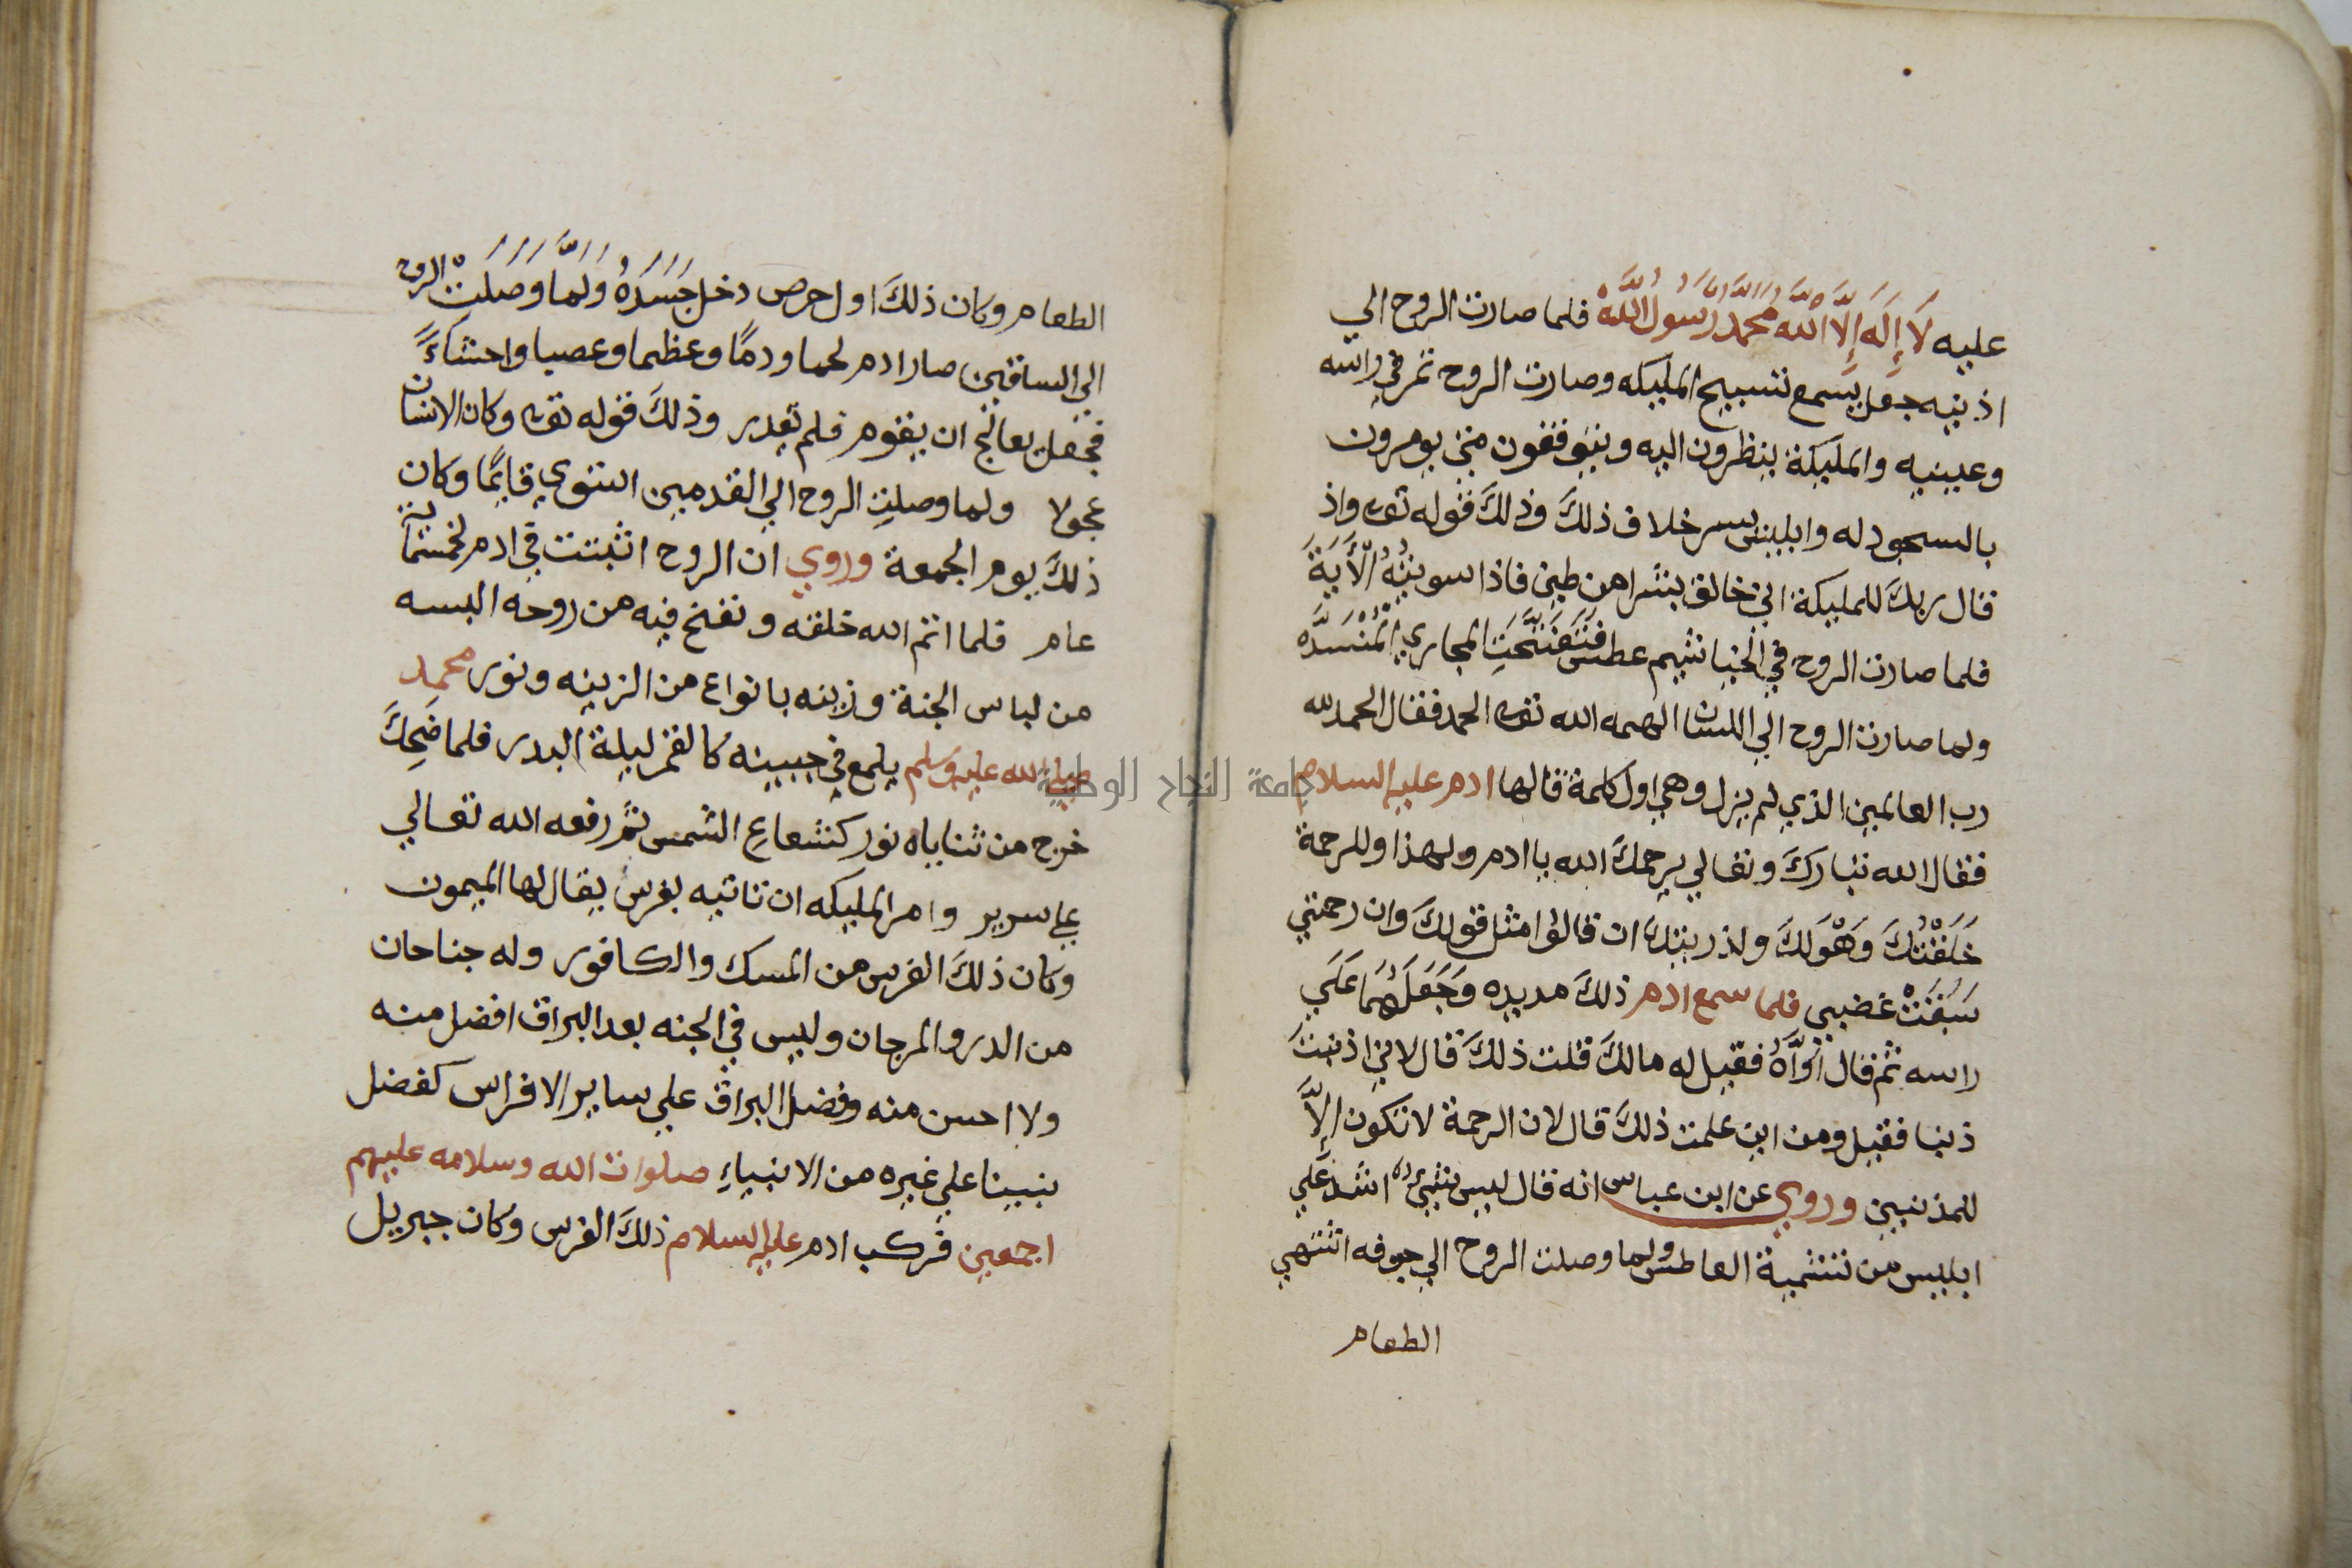 عليه لَا إِلَهَ إِلَّا اللَّهُ مُحَمَّدٌ رَسُولُ اللَّهِ فلما صارت الروح الي
اذنيه جعل يسمع تسبيح المليكه وصارت الروح تمر في راسه
وعينيه والمليكة ينظرون اليه ويتوقفون متي يومرون
بالسجود له وابليس يسر خلاف ذلكَ وذلكَ قوله تعه واذ
قال ربك للمليكة اني خالق بشرا من طين فاذا سويتُهُ الْأَيَةَ
فلما صارت الروح في الخياشيم عطس فَتَفَتَّحَتِ المجاري الْمُنْسَدَّه
ولما صارت الروح الي اللسان الهمه الله تعه الحمد فقال الحمد لله
رب العالمين الذي لم يزل وهي اول كلمة قالها ادم عليه السلام
فقال الله تباركَ وتعالي يرحمكَ الله يا ادم ولهذا وللرحمة
خَلَقْتُكَ وَهْوَلكَ ولذريتك ان قالوا مثل قولكَ وان رحمتي
سَبَقَتْ غضبي فلما سمع ادم ذلكَ مد يده وَجَعَلَهُمَا عَلَي
راسه ثم قال أَوَّاهُ فقيل له مالكَ قلت ذلكَ قال لاني اذنبتَ
ذنبا فقيل ومن اين علمت ذلكَ قال لان الرحمة لا تكون إِلَّا
للمذنبين وروي عن ابن عباس انه قال ليس شيئ اشد علي
ابليس من تشمية العاطس ولما وصلت الروح الي جوفه اشتهي
الطعام
الطعام وكان ذلكَ اول حرص دخل جَسَدَهُ وَلَمَّا وَصَلَتْ الروح
الي الساقين صار ادم لحما ودمًا وعظما وعصبا واحشاءً
فجعل يعالج ان يقوم فلم يقدر وذلكَ قوله تعه وكان الانسان
عجولا ولما وصلتِ الروح الي القدمين استوي قايمًا وكان
ذلكَ يوم الجمعة وروي ان الروح اثبتت في ادم لخمسماية
عام فلما اتم الله خلقه ونفخ فيه من روحه البسه
من لباس الجنة وزينه بانواع من الزينه ونور محمد
صلي الله عليه وسلم يلمع في جبينه كالقمر ليلة البدر فلما ضَحِكَ
خرج من ثناياه نور كشعاع الشمس ثم رفعه الله تعالي
علي سرير وامر المليكه ان تاتيه بفرس يقال لها الميمون
وكان ذلكَ الفرس من المسك والكافور وله جناحان
من الدر والمرجان وليس في الجنه بعد البراق افضل منه
ولا احسن منه وفضل البراق علي ساير الافراس كفضل
نبينا علي غيره من الانبياءِ صلوات الله وسلامه عليهم
اجمعين فركب ادم عليه السلام ذلكَ الفرس وكان جبريل
جامعة النجاح الوطنية